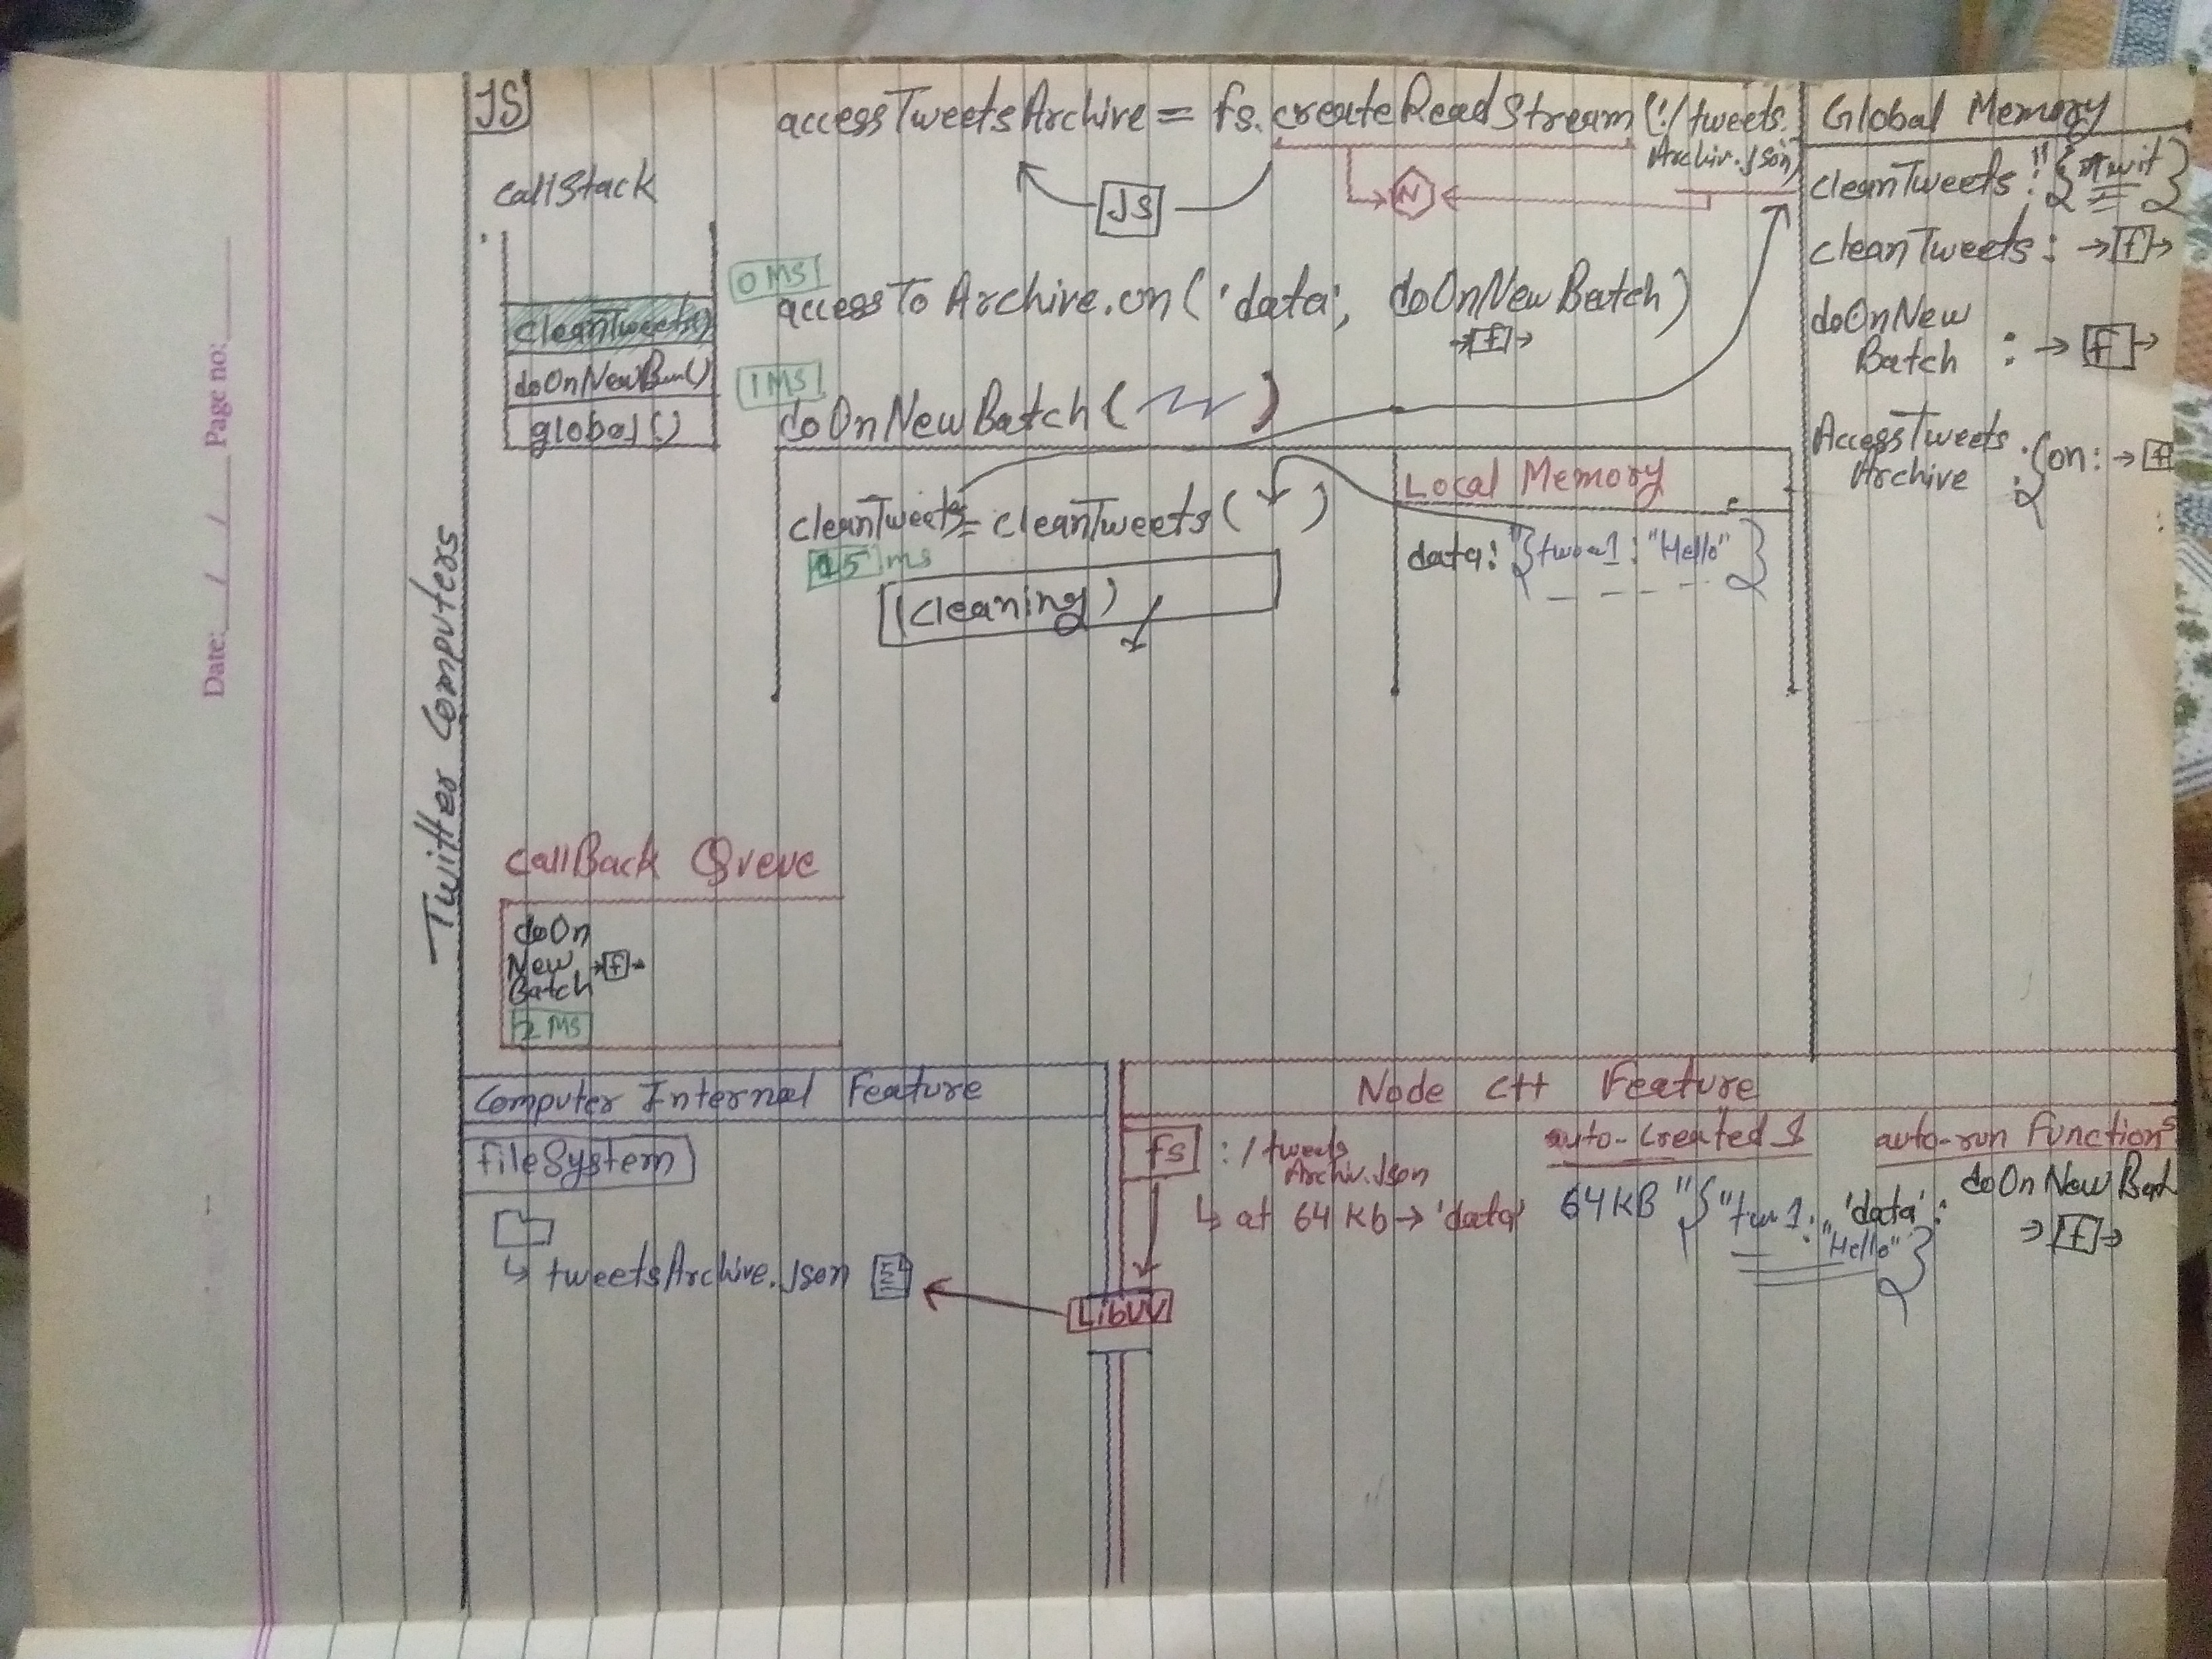 JS
accessTweetsArchive = fs.createReadStream('./tweets.
Archiv.json)
JS
N
CallStack
cleanTweets()
global()
0 MS
accessToArchive.on('data', doOnNewBatch)
→[f]→
1 MS
doOnNewBatch(
)
cleanTweets = cleanTweets( )
ms
(cleaning)
Local Memory
data: "{twee1: "Hello" }
Global Memory
cleanTweets: "{ }
cleanTweets: →[f]→
doOnNew
Batch : →[f]→
AccessTweets
Archive : {on: →[f]
Twitter Computers
Page no:
Date: / /
CallBack Queue
doOn
New →[f]→
Batch
2 MS
Computer Internal Feature
fileSystem
↳ tweetsArchive.json
LibUV
Node C++ Feature
fs : / tweets
Archiv.json
↳ at 64 kb → 'data'
auto-created 1
64KB "{"tw 1: "Hello" }
auto-run functions
'data': doOnNewBatch
→[f]→